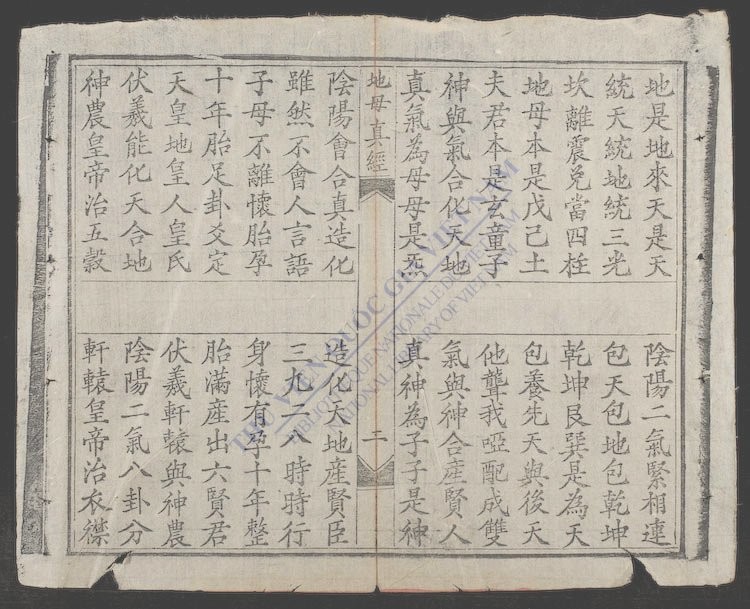 地是地來天是天
陰陽二氣緊相連
統天統地統三光
包天包地包乾坤
坎離震兌當四柱
乾坤艮巽是為天
地母本是戊己土
包養先天與後天
夫君本是玄童子
他聾我啞配成雙
神與氣合化天地
氣與神合產賢人
真氣為母母是炁
真神為子子是神
地母真經
二
陰陽會合真造化
造化天地產賢臣
雖然不會人言語
三九二八時時行
子母不離懷胎孕
身懷有孕十年整
十年胎足卦爻定
胎滿産出六賢君
天皇地皇人皇氏
伏羲軒轅與神農
伏羲能化天合地
陰陽二氣八卦分
神農皇帝治五糓
軒轅皇帝治衣襟
THƯ VIỆN QUỐC GIA VIỆT NAM
BIBLIOTHEQUE NATIONALE DU VIETNAM
NATIONAL LIBRARY OF VIETNAM